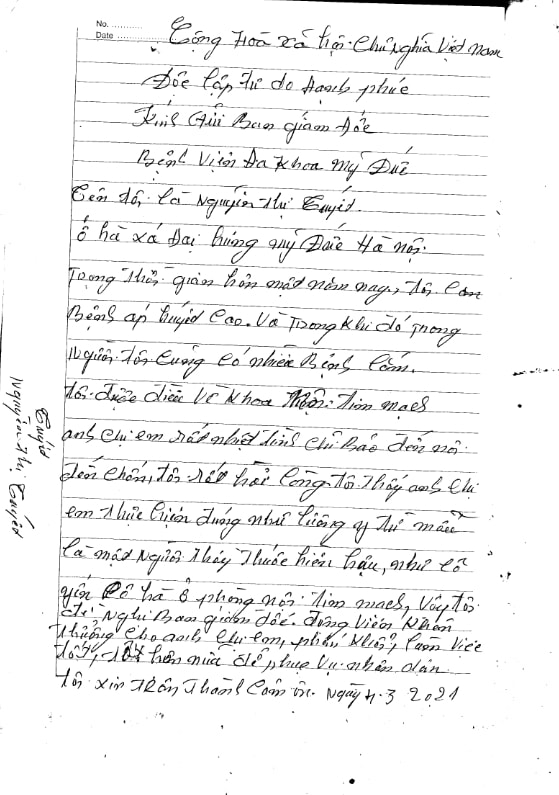 No. ............
Date ............
Cộng Hoà xã hội. Chủ nghĩa Việt Nam
Độc lập tự do Hạnh phúc
Kính Gửi Ban giám đốc
Bệnh Viện Đa Khoa Mỹ Đức
Tên tôi là Nguyễn Thị Tuyết
ở hà xá Đại hưng mỹ Đức Hà nội.
Trong thời gian hơn một năm nay, tôi
Bệnh áp huyết Cao. Và Trong Khi đó trong
Người tôi Cũng Có nhiều Bệnh lắm.
tôi được điều Về Khoa tim mạch
anh chị em rất nhiệt tình chỉ Bảo đến nơi
đến chốn, tôi rất hài lòng. tôi thấy anh chị
em thực hiện đúng như lương y từ mẫu
là một Người thầy thuốc hiền hậu, như cô
yến cô hà ở phòng nội tim mạch, Vậy tôi
đề Nghị Ban giám đốc động Viên Khen
thưởng cho anh chị em, phấn Khởi, làm Việc
tốt, tốt hơn nữa để phục Vụ nhân dân
tôi xin trân thành Cảm ơn. Ngày 4.3 2021
Tuyết
Nguyễn Thị Tuyết